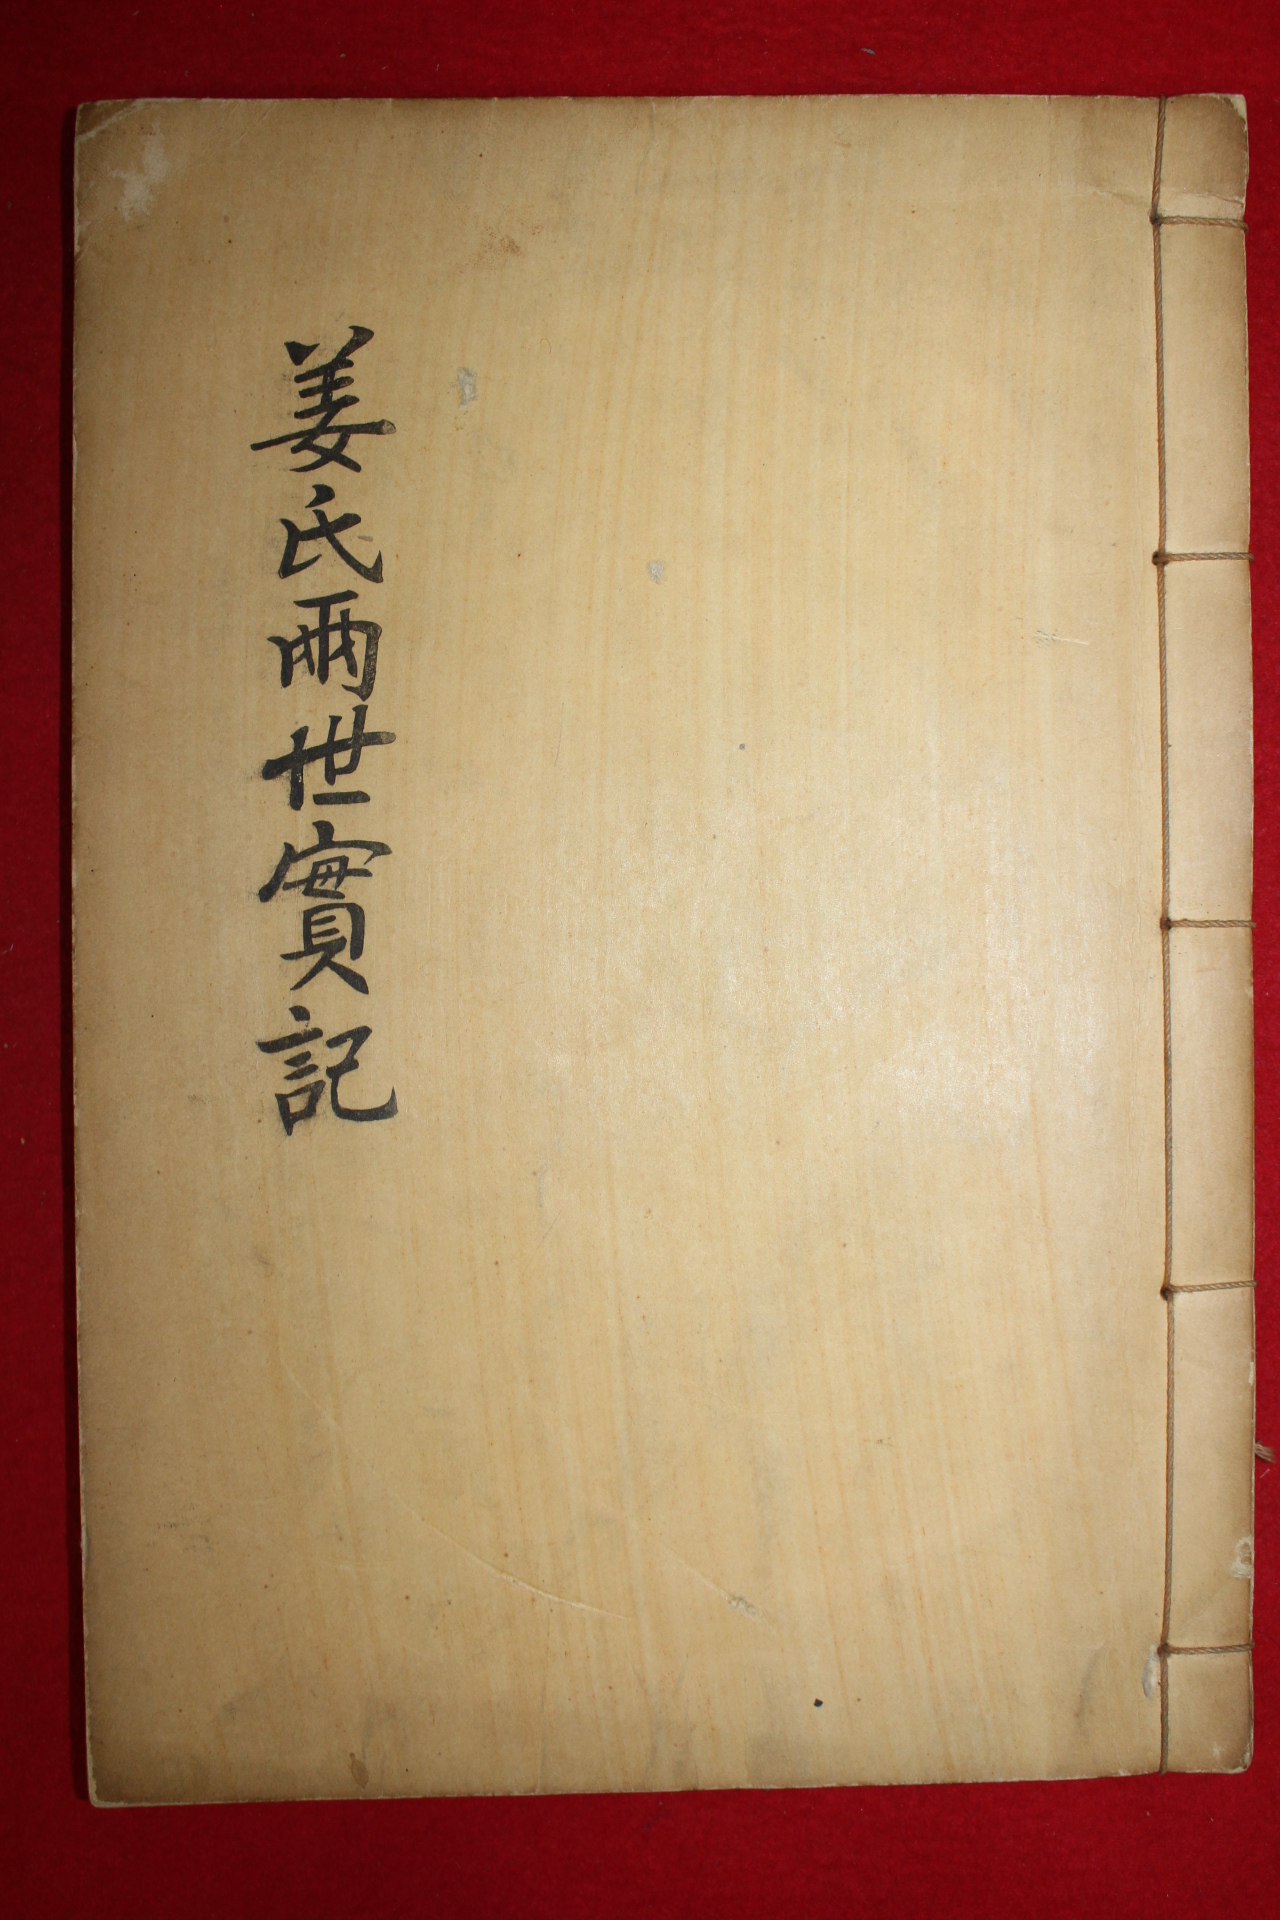 姜氏兩世實記